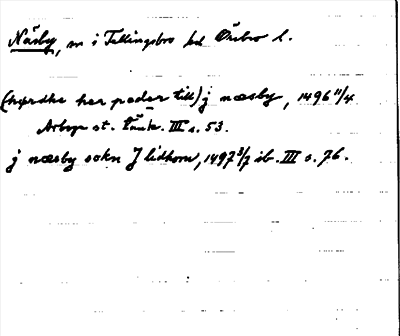 Näsby, m i Tillingsbro hd Örebro l.
(hørdhe her peder till) j næsby, 1496 11/4
Arboga st. tänk. III s. 53.
j næsby sokn J lidhom, 1497 3/7 ib. III s. 76.